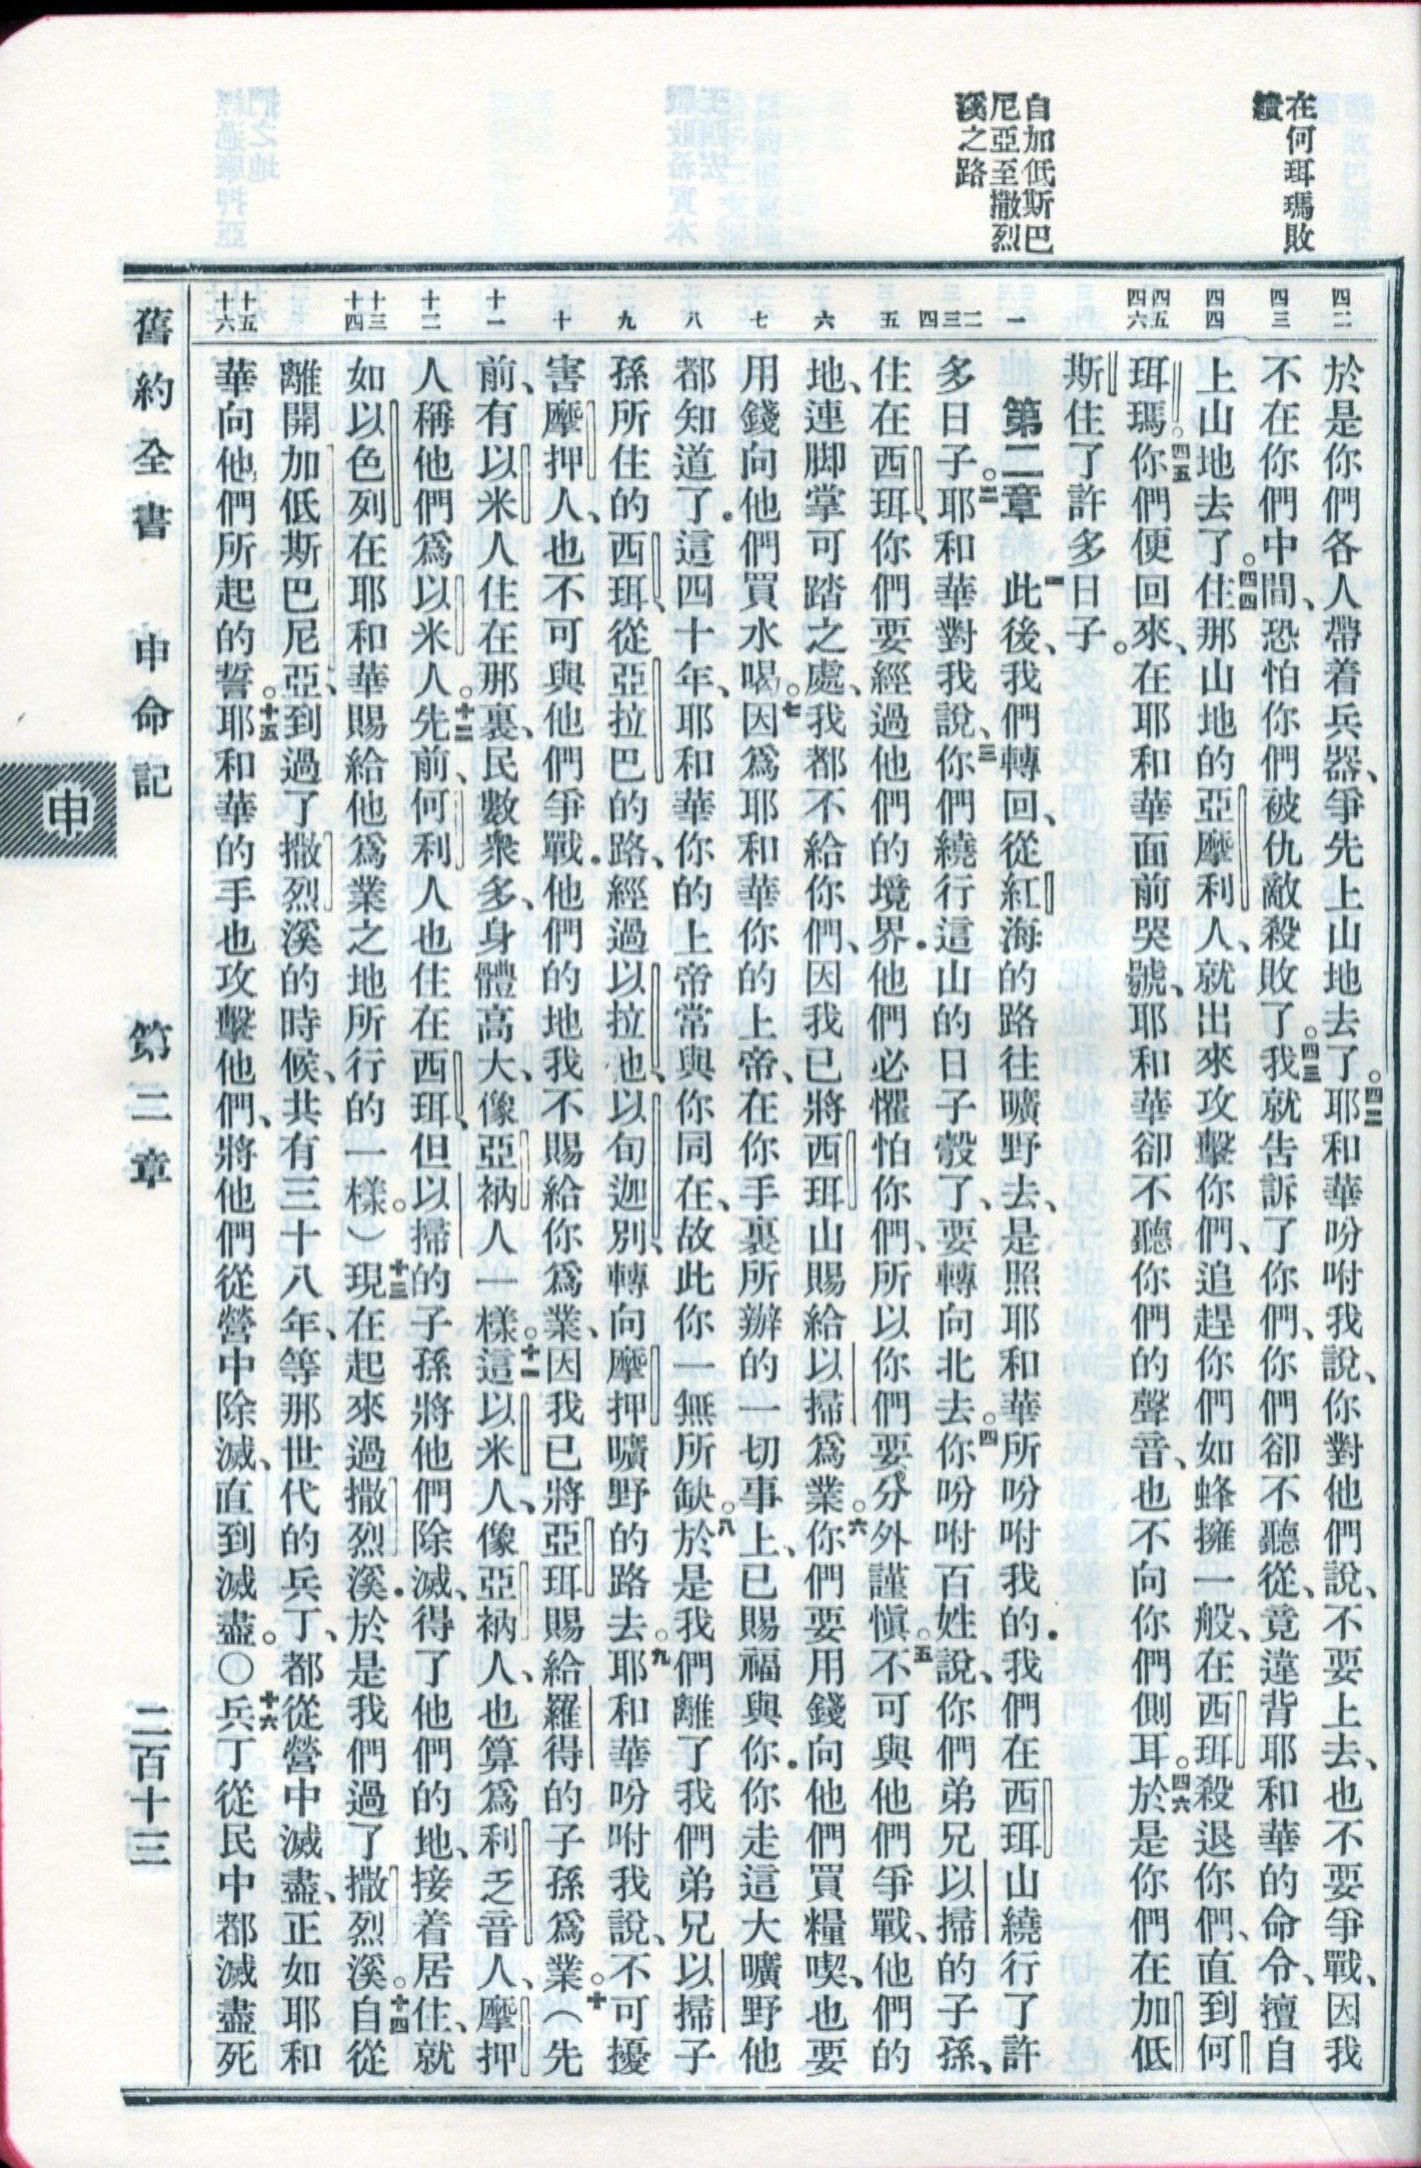 在何珥瑪敗
績
自加低斯巴
尼亞至撒烈
溪之路
四二
四三
四四
四五
四六
一
二
三
四
五
六
七
八
九
十
十一
十二
十三
十四
十五
十六
於是你們各人帶着兵器、爭先上山地去了。四二耶和華吩咐我說、你對他們說、不要上去、也不要爭戰、因我
不在你們中間、恐怕你們被仇敵殺敗了。四三我就告訴了你們、你們卻不聽從、竟違背耶和華的命令、擅自
上山地去了。四四住那山地的亞摩利人、就出來攻擊你們、追趕你們如蜂擁一般、在西珥殺退你們、直到何
珥瑪。四五你們便回來、在耶和華面前哭號、耶和華卻不聽你們的聲音、也不向你們側耳。四六於是你們在加低
斯住了許多日子。
第二章 一此後、我們轉回、從紅海的路往曠野去、是照耶和華所吩咐我的．我們在西珥山繞行了許
多日子。二耶和華對我說、三你們繞行這山的日子彀了、要轉向北去。四你吩咐百姓說、你們弟兄以掃的子孫、
住在西珥、你們要經過他們的境界．他們必懼怕你們、所以你們要分外謹愼。五不可與他們爭戰、他們的
地、連脚掌可踏之處、我都不給你們、因我已將西珥山賜給以掃爲業。六你們要用錢向他們買糧喫、也要
用錢向他們買水喝。七因爲耶和華你的上帝、在你手裏所辦的一切事上、已賜福與你．你走這大曠野他
都知道了．這四十年、耶和華你的上帝常與你同在、故此你一無所缺。八於是我們離了我們弟兄以掃子
孫所住的西珥、從亞拉巴的路、經過以拉他、以旬迦別、轉向摩押曠野的路去。九耶和華吩咐我說、不可擾
害摩押人、也不可與他們爭戰．他們的地我不賜給你爲業、因我已將亞珥賜給羅得的子孫爲業。十（先
前、有以米人住在那裏、民數衆多、身體高大、像亞衲人一樣。十一這以米人、像亞衲人、也算爲利乏音人、摩押
人稱他們爲以米人。十二先前、何利人也住在西珥、但以掃的子孫將他們除滅、得了他們的地、接着居住、就
如以色列在耶和華賜給他爲業之地所行的一樣。）十三現在起來過撒烈溪．於是我們過了撒烈溪。十四自從
離開加低斯巴尼亞、到過了撒烈溪的時候、共有三十八年、等那世代的兵丁、都從營中滅盡、正如耶和
華向他們所起的誓。十五耶和華的手也攻擊他們、將他們從營中除滅、直到滅盡。〇十六兵丁從民中都滅盡死
舊約全書 申命記 第二章 二百十三
申